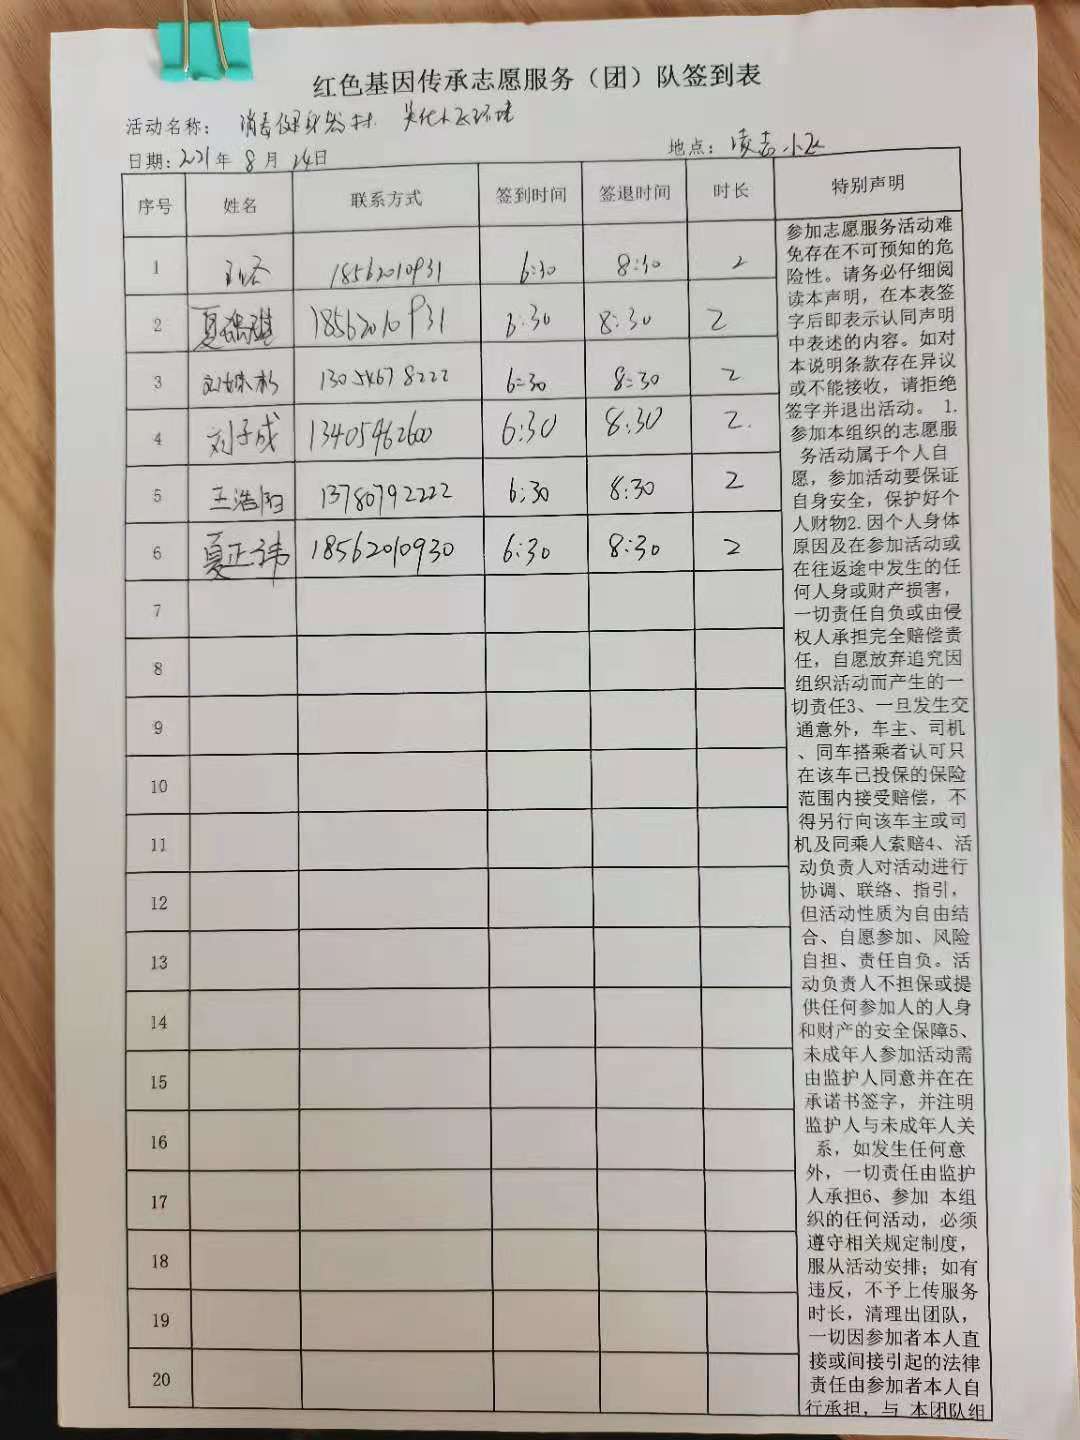 红色基因传承志愿服务（团）队签到表
活动名称： 消毒健身器材 美化小区环境
日期：2021年 8 月 24日 地点：凌志小区
序号 姓名 联系方式 签到时间 签退时间 时长 特别声明
1 18562010931 6:30 8:30 2
2 夏 18562010931 6:30 8:30 2
3 刘 13054678222 6:30 8:30 2
4 刘子成 13405462600 6:30 8:30 2.
5 王浩阳 13780792222 6:30 8:30 2
6 夏正祎 18562010930 6:30 8:30 2
7
8
9
10
11
12
13
14
15
16
17
18
19
20
参加志愿服务活动难
免存在不可预知的危
险性。请务必仔细阅
读本声明，在本表签
字后即表示认同声明
中表述的内容。如对
本说明条款存在异议
或不能接收，请拒绝
签字并退出活动。 1.
参加本组织的志愿服
务活动属于个人自
愿，参加活动要保证
自身安全，保护好个
人财物2.因个人身体
原因及在参加活动或
在往返途中发生的任
何人身或财产损害，
一切责任自负或由侵
权人承担完全赔偿责
任，自愿放弃追究因
组织活动而产生的一
切责任3、一旦发生交
通意外，车主、司机
、同车搭乘者认可只
在该车已投保的保险
范围内接受赔偿，不
得另行向该车主或司
机及同乘人索赔4、活
动负责人对活动进行
协调、联络、指引，
但活动性质为自由结
合、自愿参加、风险
自担、责任自负。活
动负责人不担保或提
供任何参加人的人身
和财产的安全保障5、
未成年人参加活动需
由监护人同意并在在
承诺书签字，并注明
监护人与未成年人关
系，如发生任何意
外，一切责任由监护
人承担6、参加 本组
织的任何活动，必须
遵守相关规定制度，
服从活动安排；如有
违反，不予上传服务
时长，清理出团队，
一切因参加者本人直
接或间接引起的法律
责任由参加者本人自
行承担，与 本团队组